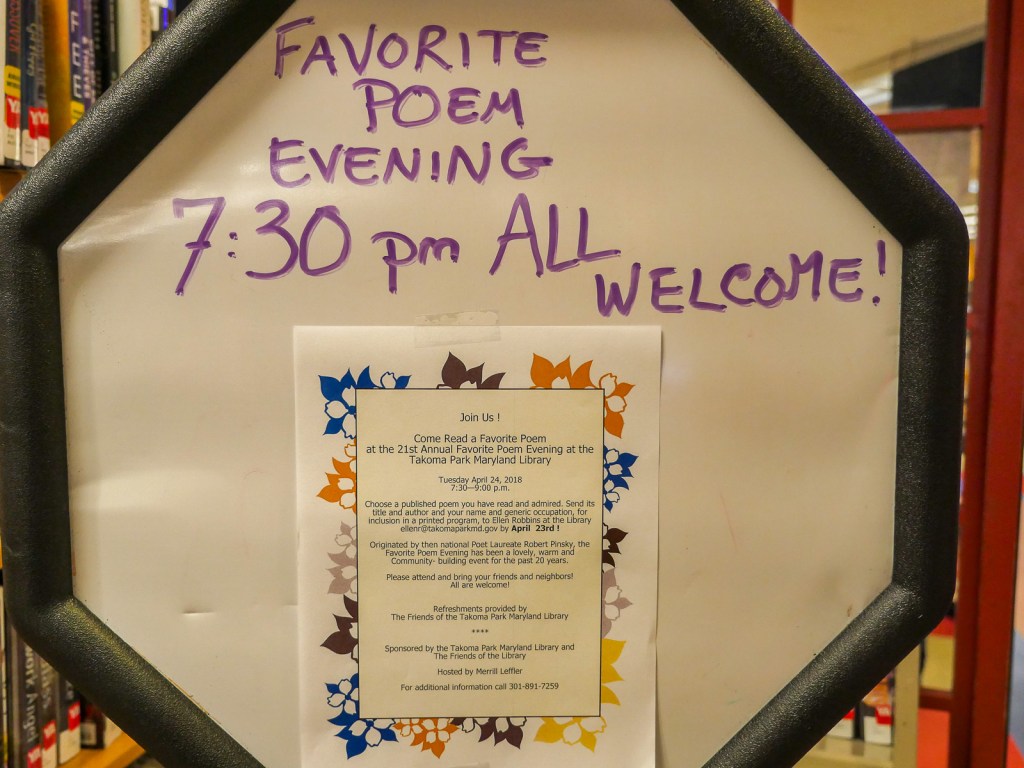 FAVORITE
POEM
EVENING
7:30 pm ALL
WELCOME!
Join Us !
Come Read a Favorite Poem
at the 21st Annual Favorite Poem Evening at the
Takoma Park Maryland Library
Tuesday April 24, 2018
7:30—9:00 p.m.
Choose a published poem you have read and admired. Send its
title and author and your name and generic occupation, for
inclusion in a printed program, to Ellen Robbins at the Library
ellenr@takomaparkmd.gov by April 23rd !
Originated by then national Poet Laureate Robert Pinsky, the
Favorite Poem Evening has been a lovely, warm and
Community- building event for the past 20 years.
Please attend and bring your friends and neighbors!
All are welcome!
Refreshments provided by
The Friends of the Takoma Park Maryland Library
****
Sponsored by the Takoma Park Maryland Library and
The Friends of the Library
Hosted by Merrill Leffler
For additional information call 301-891-7259